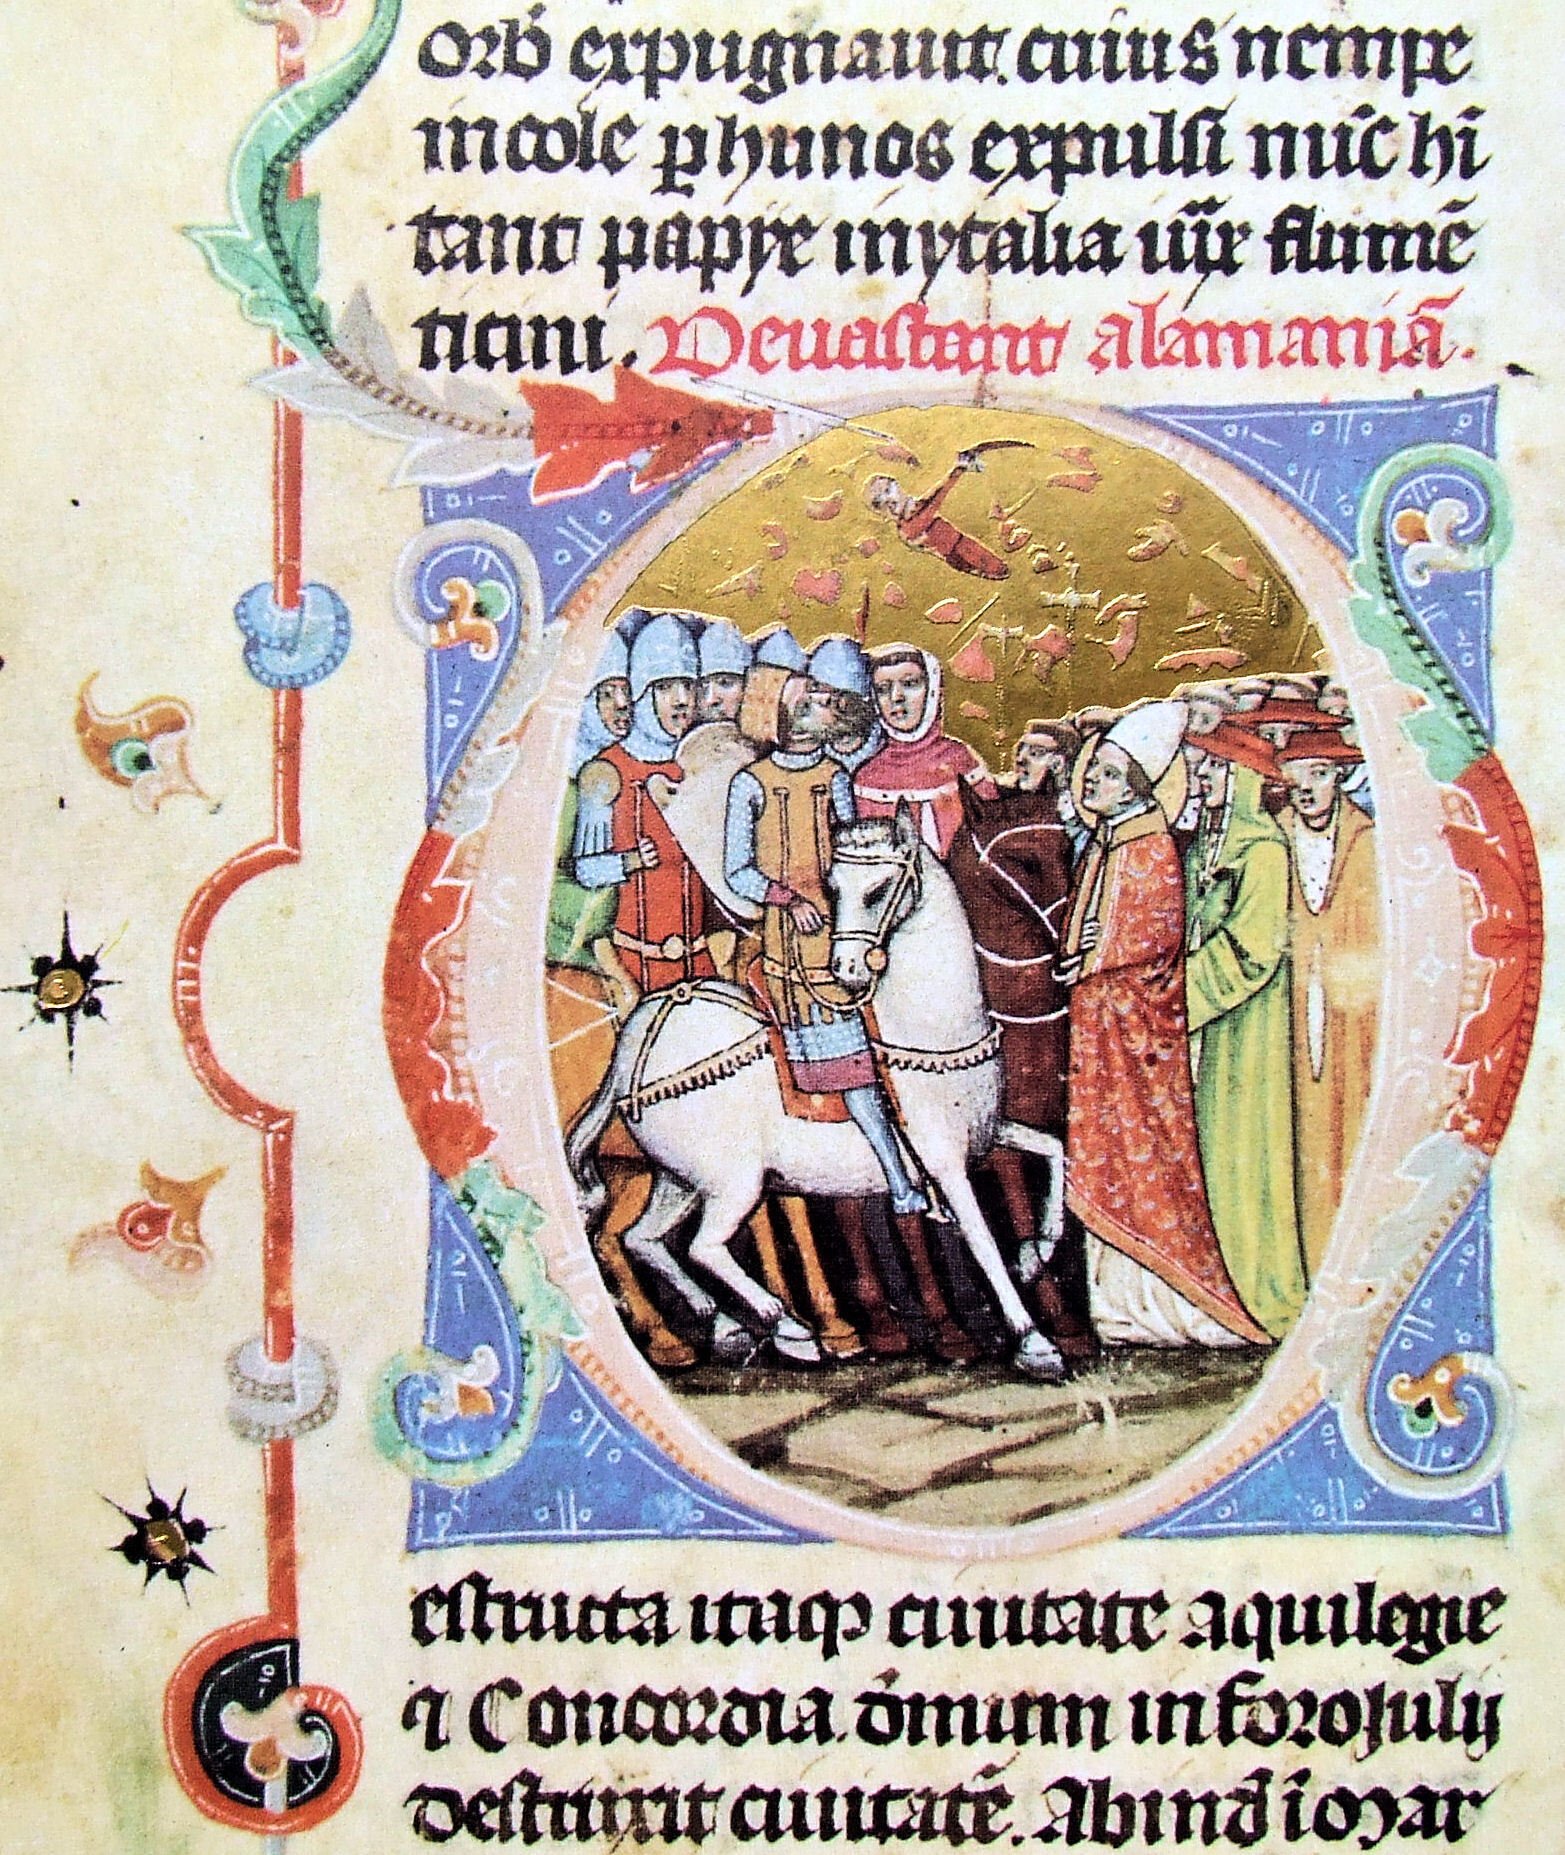 orб expugnauit. cuius nempe
incole p hunos expulsi nūc hī
tant papye in ytalia iux̄ flumē
ticini. Deuastant alamaniā.
estructa itaqꝫ ciuitate aquilegie
⁊ Concordia. dm̄um in foroiulii
destruxit ciuitatē. Ab ind ī